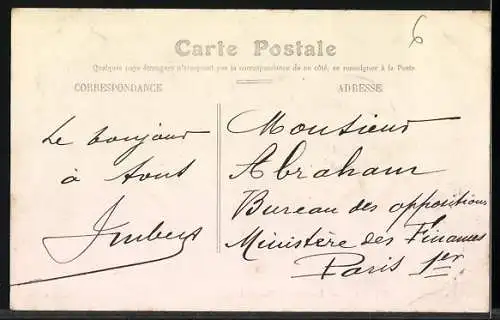 6
Carte Postale
Quelques pays étrangers n'acceptant pas la correspondance de ce côté, se renseigner à la Poste
CORRESPONDANCE
ADRESSE
Le bonjour
à tous
Imbert
Monsieur
Abraham
Bureau des oppositions
Ministère des Finances
Paris 1er